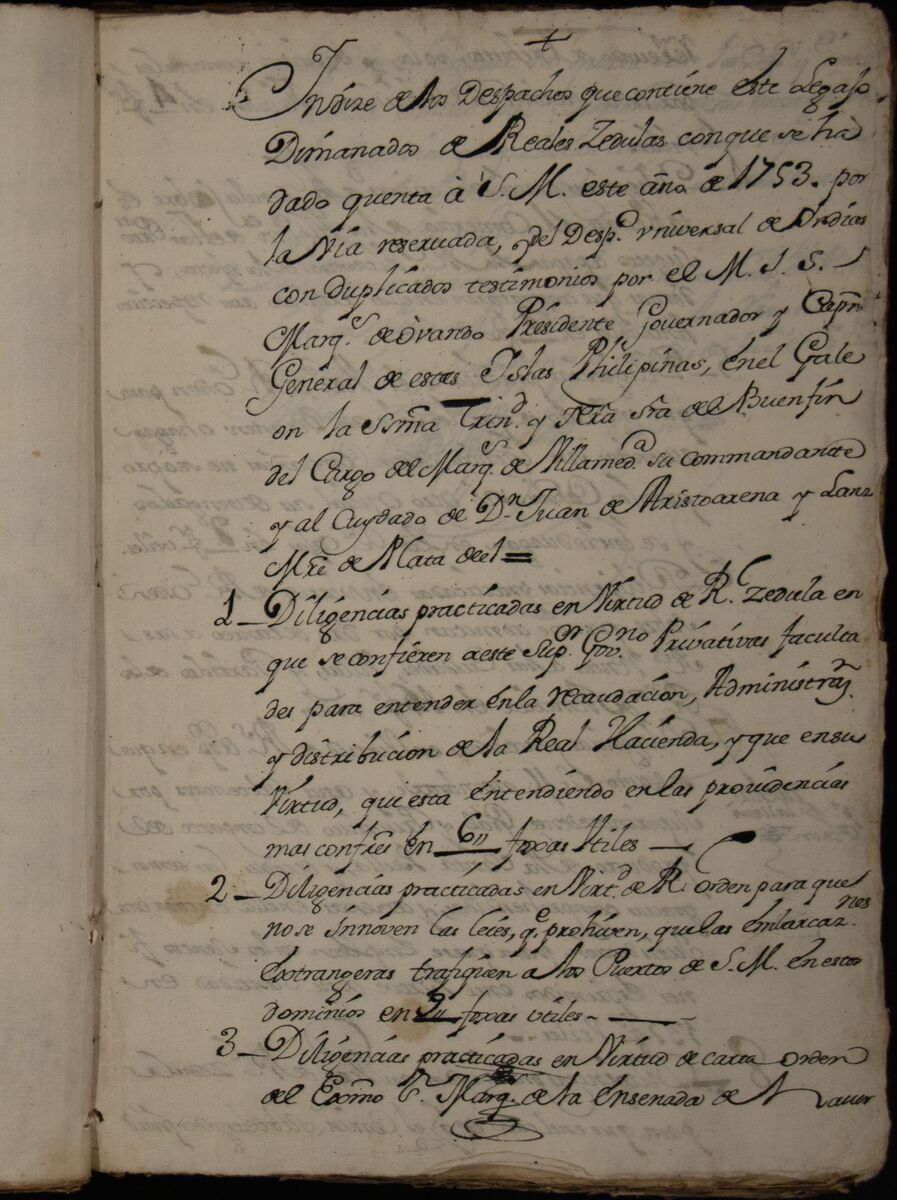 +
Indize de los Despachos que contiene este Legajo
Dimanados de Reales Zedulas con que se ha
dado quenta à S. M. este año de 1753. por
la via reservada, y del Desp.o vniversal de Yndias
con duplicados testimonios por el M. I. S.
Marq.s de Ovando Presidente Governador y Capn
General de estas Islas Philipinas, en el Gale
on la Ssma Trind. y Nra Sra de el Buenfin
del Cargo de el Marq.s de Villamed.a su commandante
y al Cuydado de Dn Juan de Aristoarena y Lanz
Mre de Plata de el =
1 - Diligencias practicadas en Virtud de R.l Zedula en
que se confieren a este Sup.or Gov.no Privativas faculta
des para entender en la recaudacion, Administraz.n
y distribucion de la Real Hacienda, y que en su
Virtud, qui esta entendiendo en las providencias
mas confres en 6,, foxas Vtiles
2 - Diligencias practicadas en Virt.d de R.l orden para que
no se innoven las leies, q.e prohiven, que las embarcaz.nes
extrangeras trafiquen a los Puertos de S. M. en estos
dominios en 9,, foxas vtiles -
3 - Diligencias practicadas en Virtud de carta orden
del Exmo S.r Marq.s de la Ensenada de